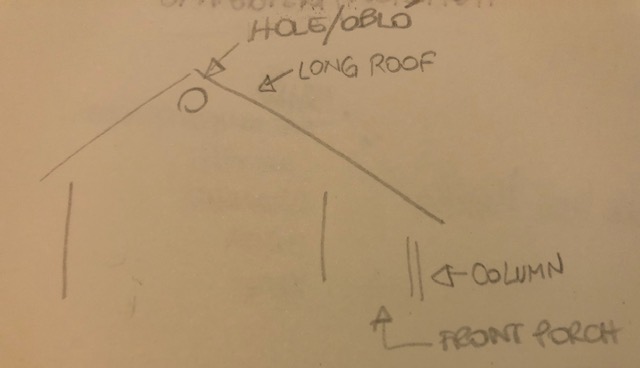 HOLE/OBLO
LONG ROOF
COLUMN
FRONT PORCH